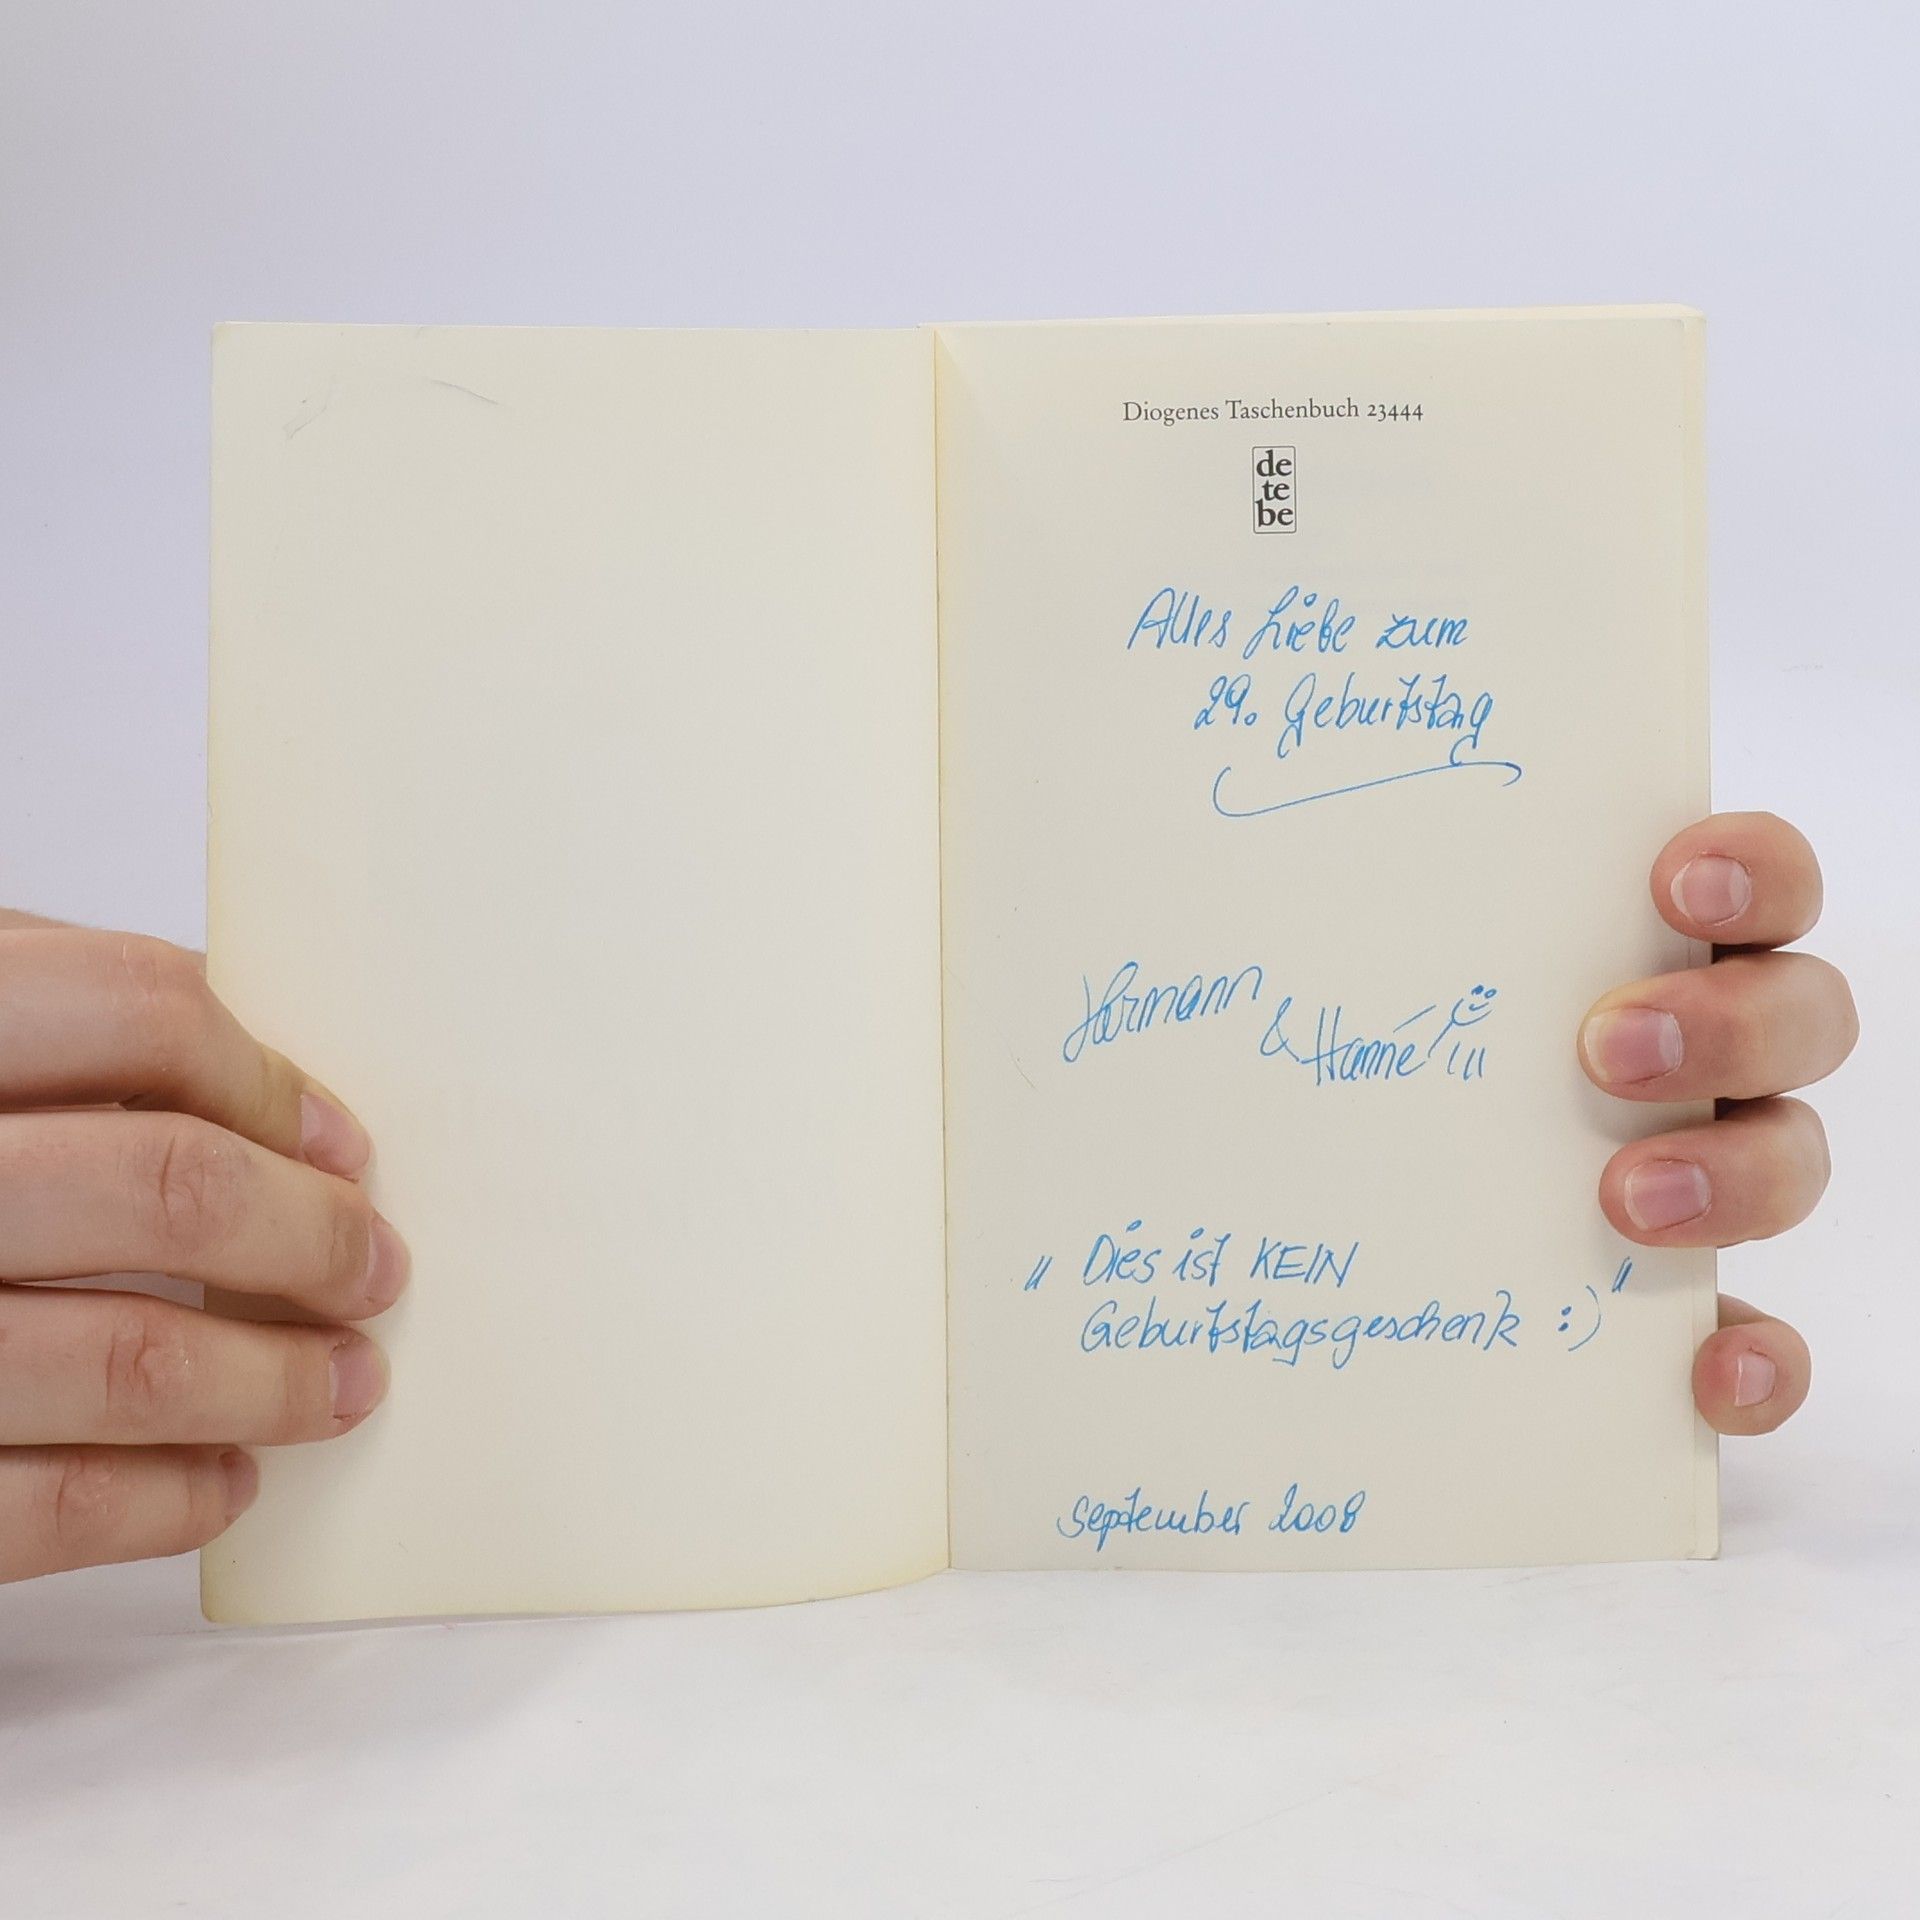 Diogenes Taschenbuch 23444
de
te
be
Alles Liebe zum
29. Geburtstag
Hermann
& Hanne !!!
" Dies ist KEIN
Geburtstagsgeschenk :) "
september 2008